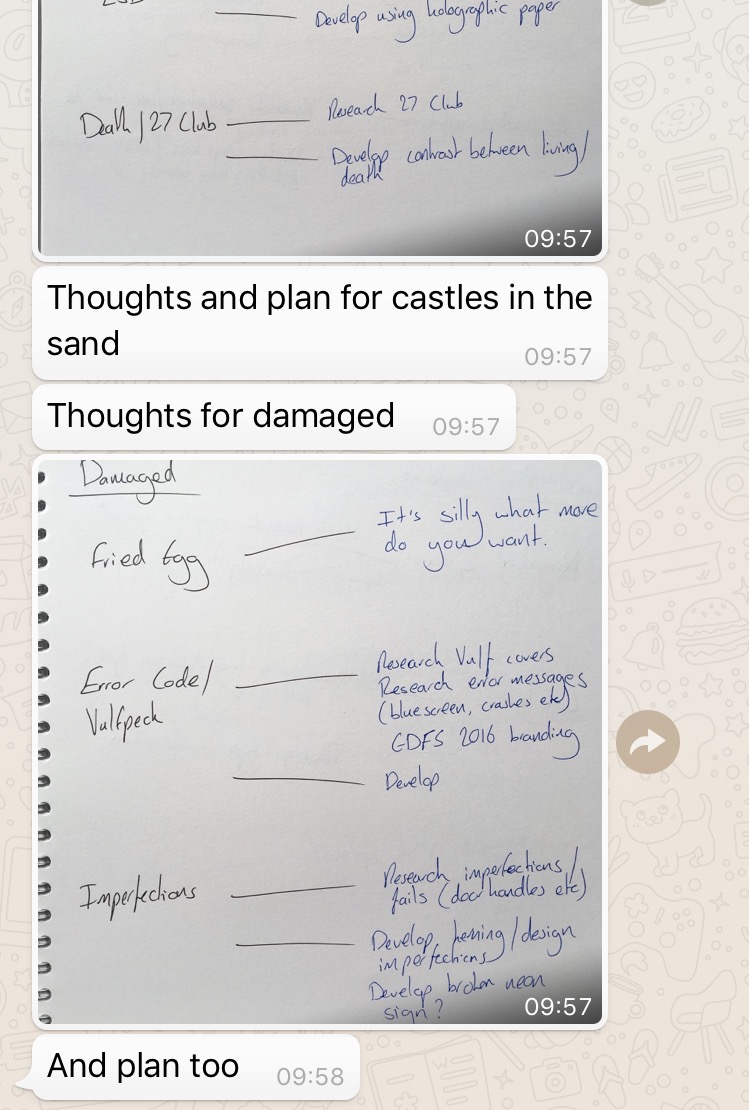 Develop using holographic paper
Death / 27 Club
Research 27 Club
Develop contrast between living/
death
09:57
Thoughts and plan for castles in the
sand
09:57
Thoughts for damaged
09:57
Damaged
Fried Egg
It's silly what more
do you want.
Error Code/
Vulfpeck
Research Vulf covers
Research error messages
(bluescreen, crashes etc)
GDFS 2016 branding
Develop
Imperfections
Research imperfections/
fails (door handles etc)
Develop /design
imperfections
Develop broken neon
sign?
09:57
And plan too
09:58